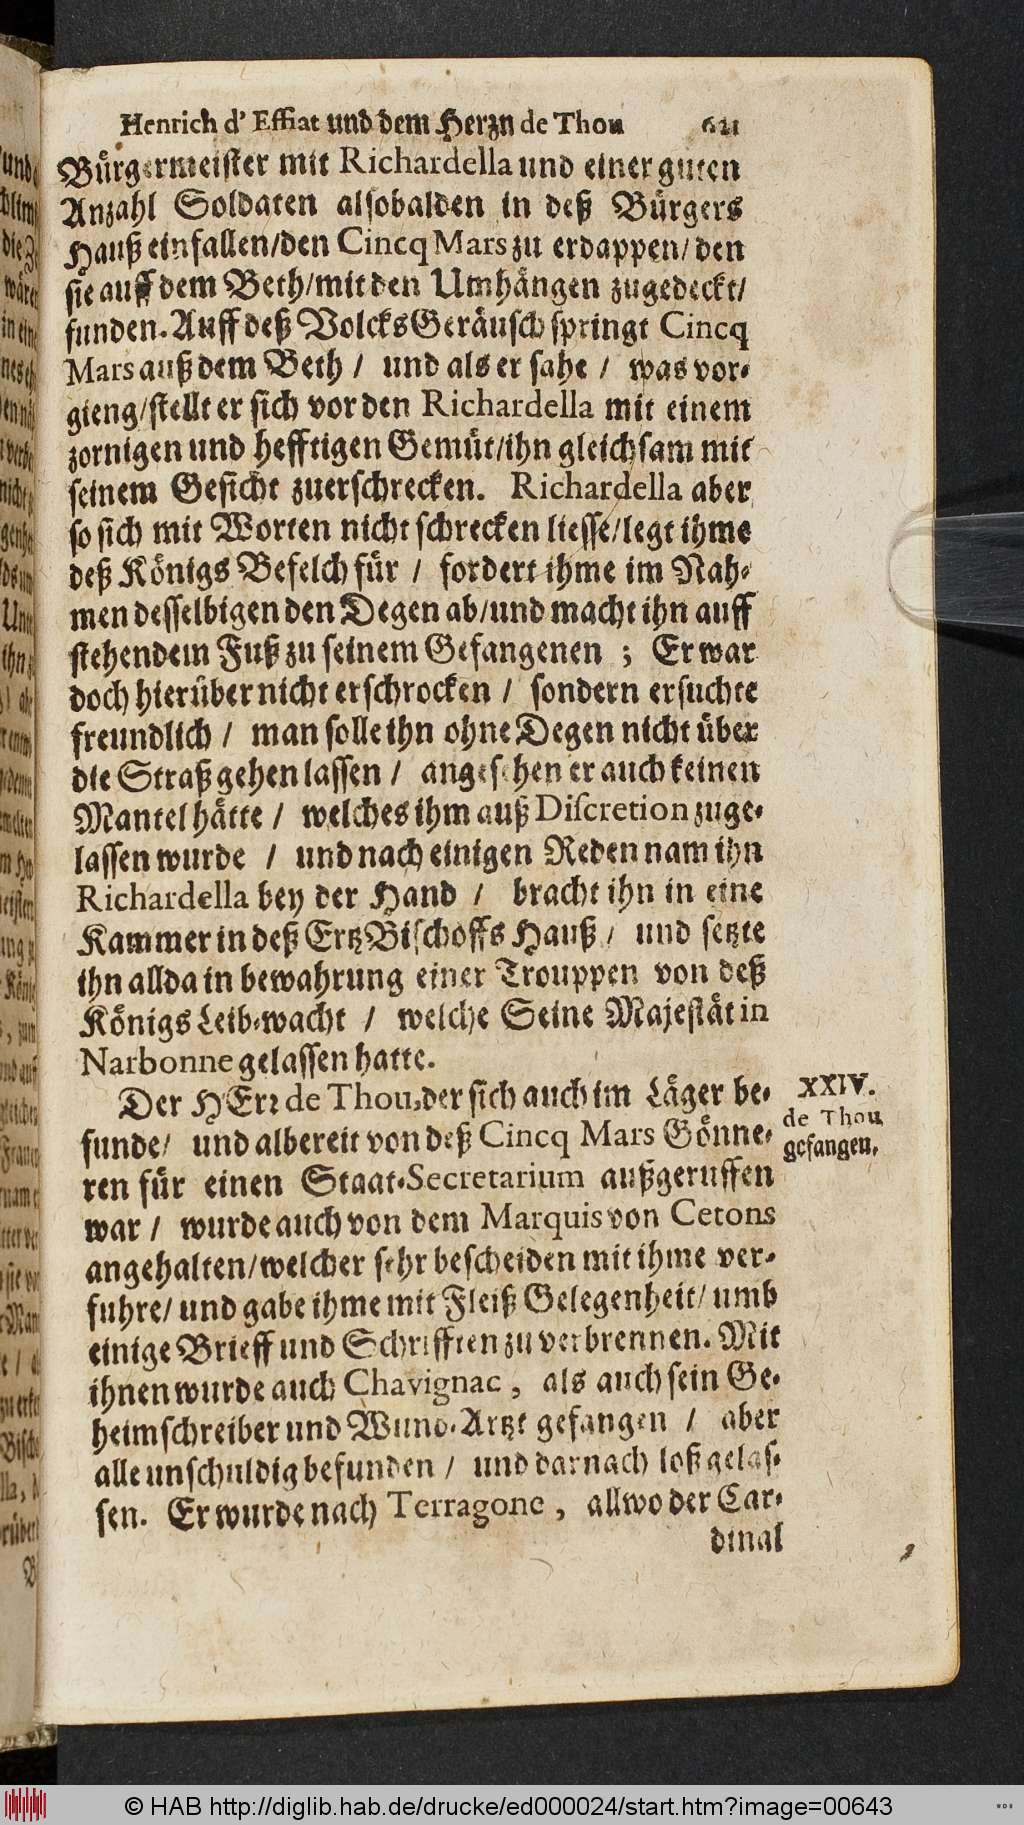 Henrich d' Effiat und dem Herzn de Thou 621
Bürgermeister mit Richardella und einer guten
Anzahl Soldaten alsobalden in deß Bürgers
Hauß einfallen/den Cincq Mars zu erdappen/ den
sie auff dem Beth/mit den Umhängen zugedeckt/
funden. Auff deß Volcks Geräusch springt Cincq
Mars auß dem Beth / und als er sahe / was vor-
gieng/stellt er sich vor den Richardella mit einem
zornigen und hefftigen Gemüt/ihn gleichsam mit
seinem Gesicht zuerschrecken. Richardella aber
so sich mit Worten nicht schrecken liesse/legt ihme
deß Königs Befelch für / fordert ihme im Nah-
men desselbigen den Degen ab/und macht ihn auff
stehendem Fuß zu seinem Gefangenen ; Er war
doch hierüber nicht erschrocken / sondern ersuchte
freundlich / man solle ihn ohne Degen nicht über
die Straß gehen lassen / angesehen er auch keinen
Mantel hätte / welches ihm auß Discretion zuge-
lassen wurde / und nach einigen Reden nam ihn
Richardella bey der Hand / bracht ihn in eine
Kammer in deß Ertz Bischoffs Hauß / und setzte
ihn allda in bewahrung einer Trouppen von deß
Königs Leib-wacht / welche Seine Majestät in
Narbonne gelassen hatte.
Der HErr de Thou, der sich auch im Läger be-
funde/ und albereit von deß Cincq Mars Gönne-
ren für einen Staat-Secretarium außgeruffen
war / wurde auch von dem Marquis von Cetons
angehalten/welcher sehr bescheiden mit ihme ver-
fuhre/ und gabe ihme mit Fleiß Gelegenheit/ umb
einige Brieff und Schrifften zu verbrennen. Mit
ihnen wurde auch Chavignac, als auch sein Ge-
heimschreiber und Wund-Artzt gefangen / aber
alle unschuldig befunden / und darnach loß gelas-
sen. Er wurde nach Terragone, allwo der Car-
dinal
XXIV.
de Thou
gefangen.
© HAB http://diglib.hab.de/drucke/ed000024/start.htm?image=00643